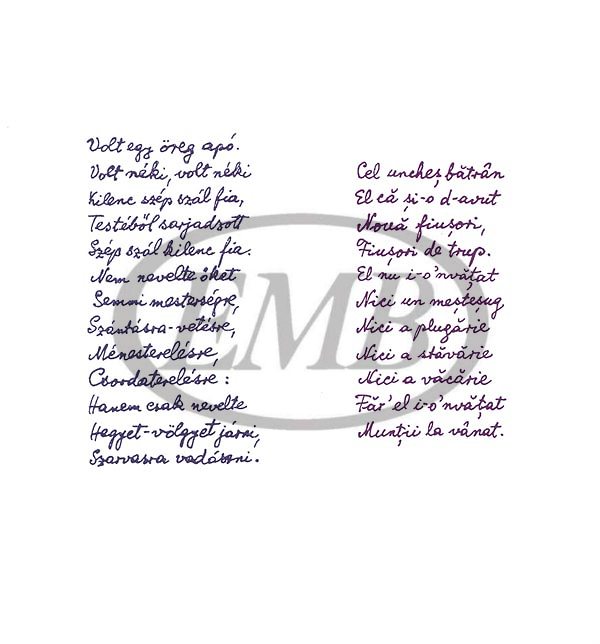 Volt egy öreg apó.
Volt néki, volt néki
Kilenc szép szál fia,
Testéből sarjadzott
Szép szál kilenc fia.
Nem nevelte őket
Semmi mesterségre,
Szántásra-vetésre,
Ménesterelésre,
Csordaterelésre:
Hanem csak nevelte
Hegyet-völgyet járni,
Szarvasra vadászni.
Cel uncheș bătrân
El că și-o d-avut
Nouă fiușori,
Fiușori de trup.
El nu i-o'nvățat
Nici un meșteșug
Nici a plugărie
Nici a stăvărie
Nici a văcărie
Făr'el i-o'nvățat
Munții la vânat.
EMB